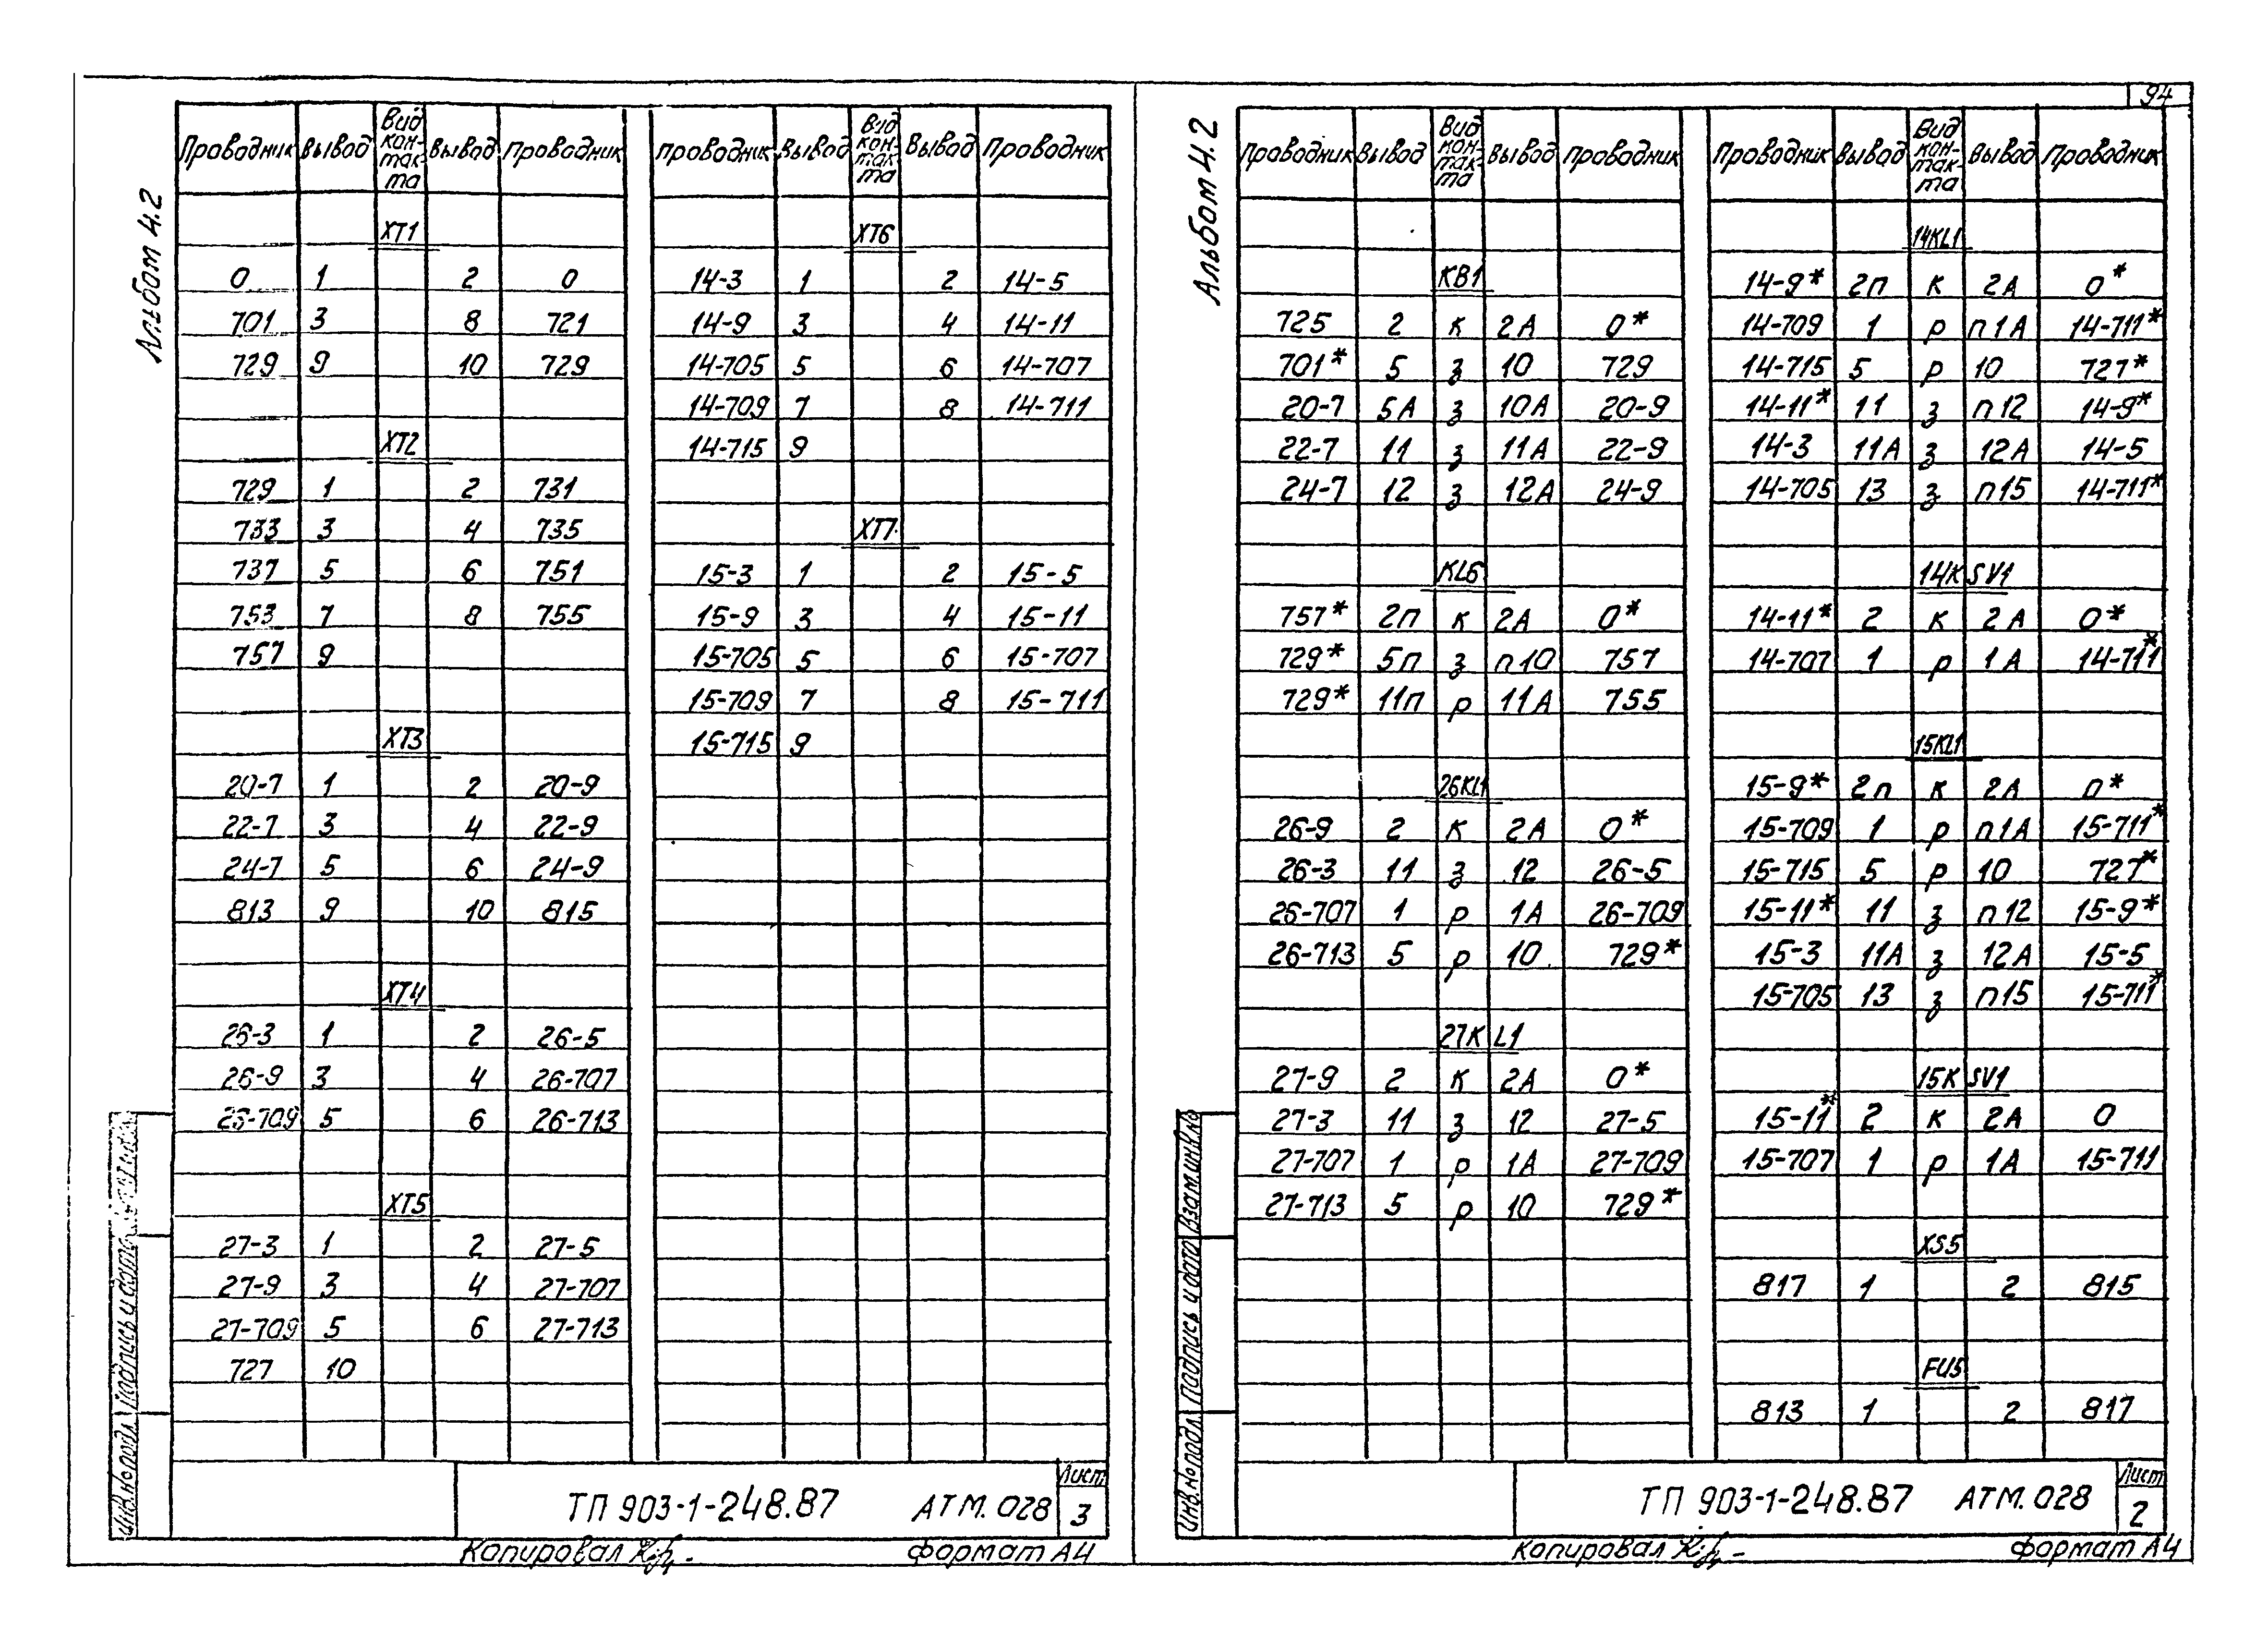 94
Альбом 4.2
Проводник Вывод Вид контакта Вывод Проводник
XT1
0 1 2 0
701 3 8 721
729 9 10 729
XT2
729 1 2 731
733 3 4 735
737 5 6 751
753 7 8 755
757 9
XT3
20-7 1 2 20-9
22-7 3 4 22-9
24-7 5 6 24-9
813 9 10 815
XT4
26-3 1 2 26-5
26-9 3 4 26-707
26-709 5 6 26-713
XT5
27-3 1 2 27-5
27-9 3 4 27-707
27-709 5 6 27-713
727 10
Проводник Вывод Вид контакта Вывод Проводник
XT6
14-3 1 2 14-5
14-9 3 4 14-11
14-705 5 6 14-707
14-709 7 8 14-711
14-715 9
XT7
15-3 1 2 15-5
15-9 3 4 15-11
15-705 5 6 15-707
15-709 7 8 15-711
15-715 9
Инв.№ подл. Подпись и дата
ТП 903-1-248.87 АТМ.028
Лист
3
Копировал
Формат А4
Альбом 4.2
Проводник Вывод Вид контакта Вывод Проводник
KB1
725 2 к 2А 0*
701* 5 з 10 729
20-7 5А з 10А 20-9
22-7 11 з 11А 22-9
24-7 12 з 12А 24-9
KL6
757* 2п к 2А 0*
729* 5п з п10 757
729* 11п р 11А 755
26KL1
26-9 2 к 2А 0*
26-3 11 з 12 26-5
26-707 1 р 1А 26-709
26-713 5 р 10 729*
27KL1
27-9 2 к 2А 0*
27-3 11 з 12 27-5
27-707 1 р 1А 27-709
27-713 5 р 10 729*
Проводник Вывод Вид контакта Вывод Проводник
14KL1
14-9* 2п к 2А 0*
14-709 1 р п1А 14-711*
14-715 5 р 10 727*
14-11* 11 з п12 14-9*
14-3 11А з 12А 14-5
14-705 13 з п15 14-711*
14KSV1
14-11* 2 к 2А 0*
14-707 1 р 1А 14-711*
15KL1
15-9* 2п к 2А 0*
15-709 1 р п1А 15-711*
15-715 5 р 10 727*
15-11* 11 з п12 15-9*
15-3 11А з 12А 15-5
15-705 13 з п15 15-711*
15KSV1
15-11* 2 к 2А 0
15-707 1 р 1А 15-711
XS5
817 1 2 815
FU5
813 1 2 817
Инв.№ подл. Подпись и дата Взам.инв.№
ТП 903-1-248.87 АТМ.028
Лист
2
Копировал
Формат А4